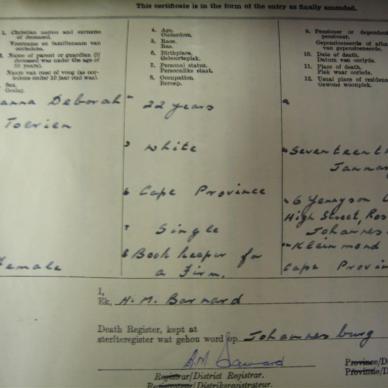 This certificate is in the form of the entry as finally amended.
1. Christian names and surname of deceased.
Voorname en familienaam van oorledene.
2. Name of parent or guardian (if deceased was under the age of 10 years).
Naam van ouer of voog (as oorledene onder 10 jaar oud was)
3. Sex.
Geslag.
4. Age.
Ouderdom.
5. Race.
Ras.
6. Birthplace.
Geboorteplek.
7. Personal status.
Persoonlike staat.
8. Occupation.
Beroep.
9. Pensioner or dependent
pensioner.
Gepensioeneerde of
van gepensioeneerde.
10. Date of death.
Datum van oorlyde.
11. Place of death.
Plek waar oorlede.
12. Usual place of residence
Gewone woonplek.
anna Deborah
Toerien
Female
22 years
5 White
6 Cape Province
7 Single
8 Book keeper for
a Firm.
Seventeenth
January
6 Court
High Street, Ros
Johannes
Kleinmond
Cape Provin
I,
Ek, H. M. Barnard
Death Register, kept at
sterfteregister wat gehou word op Johannesburg
Registrar/District Registrar.
Registrateur/Distriksregistrateur.
Province
Provinsie